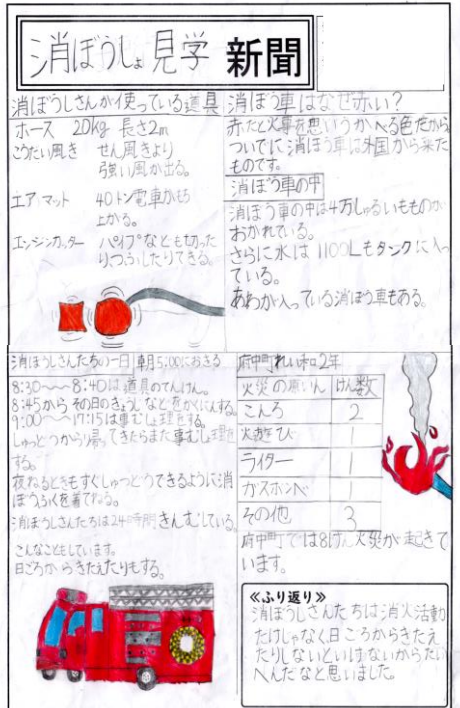 消ぼうしょ見学 新聞
消ぼうしさんが使っている道具
ホース 20kg 長さ2m
ごうたい風き せん風きより
強い風が出る。
エアーマット 40トン電車がもち
上がる。
エンジンカッター パイプなども切った
り、つぶしたりできる。
消ぼう車はなぜ赤い?
赤だと火事を思いうかべる色だから
ついでに消ぼう車は外国から来た
ものです。
消ぼう車の中
消ぼう車の中は4万しゅるいもものが
おかれている。
さらに水は1100Lもタンクに入っ
ている。
あわが入っている消ぼう車もある。
消ぼうしさんたちの一日 朝5:00におきる
8:30〜〜8:40は道具のてんけん。
8:45からその日のきょうしなどをかくにんする。
9:00〜〜17:15は事むしょ理をする。
しゅっとうから帰ってきたらまた事むしょ理を
する。
夜ねるときもすぐしゅつどうできるように消
ぼうふくを着てねる。
消ぼうしさんたちは24時間きんむしている。
こんなこともしています。
日ごろからきたえたりもする。
府中町れい和2年
火災の原いん けん数
こんろ 2
火遊び 1
ライター 1
ガスボンベ 1
その他 3
府中町では8けん火災が起きて
います。
≪ふり返り≫
消ぼうしさんたちは消火活動
だけじゃなく日ごろからきたえ
たりしないといけないからたい
へんだなと思いました。